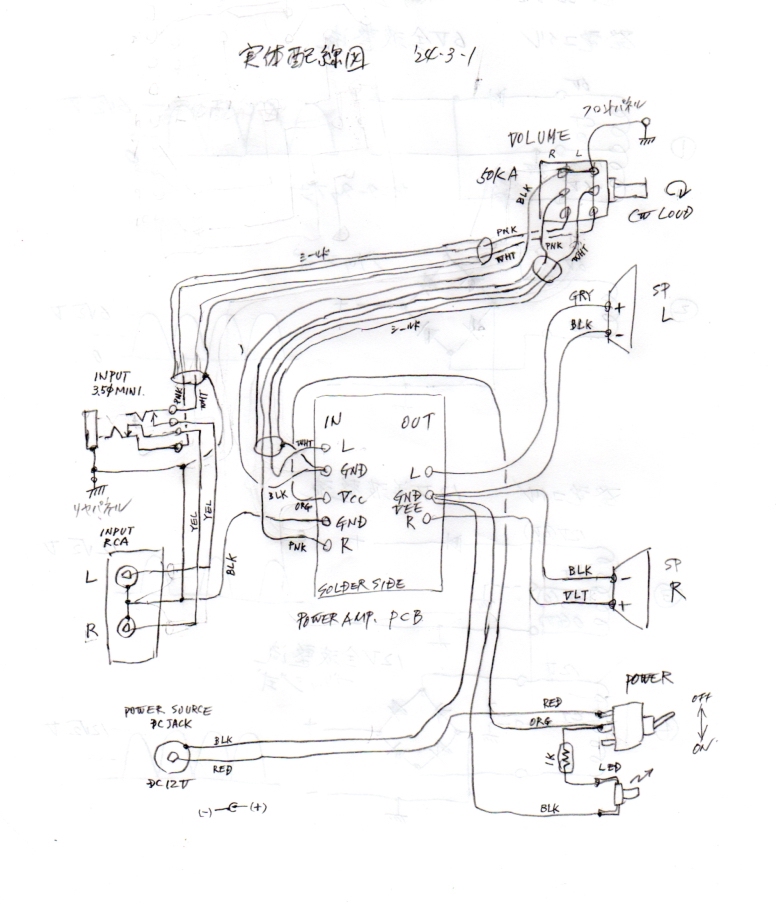 実体配線図 '24-3-1
フロントパネル
VOLUME
R L
50KA
BLK
CW LOUD
PNK
WHT
PNK
WHT
シールド
シールド
GRY
BLK
+
-
SP
L
INPUT
3.5φ MINI.
PNK
WHT
リヤパネル
INPUT
RCA
L
R
YEL
YEL
BLK
IN OUT
WHT
L
GND
BLK
VCC
ORG
GND
PNK
R
L
GND
VEE
R
SOLDER SIDE
POWER AMP. PCB
BLK
VLT
-
+
SP
R
POWER SOURCE
DC JACK
BLK
RED
DC 12V
(-) (+)
POWER
RED
ORG
OFF
ON
1K
LED
BLK